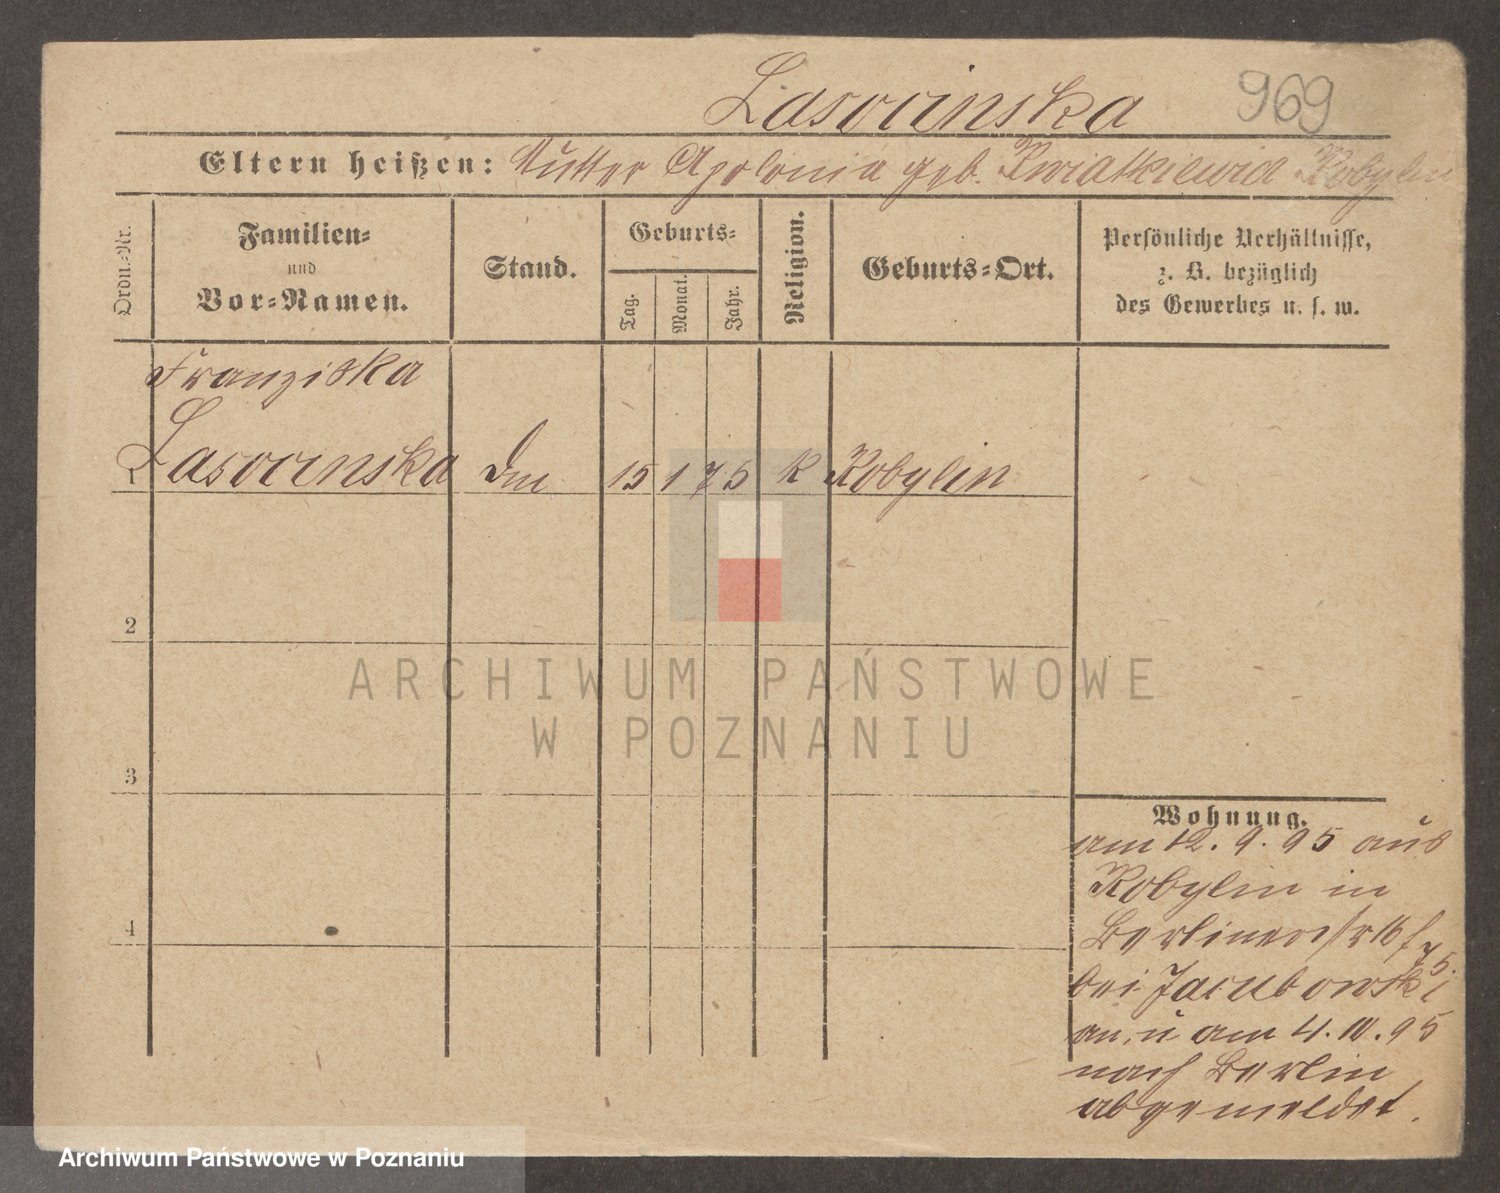 Lasocinska 969
Eltern heißen: Mutter Apolonia geb. Kwiatkiewicz Kobylin
Ordn.-Nr.
Familien-
und
Vor-Namen.
Stand.
Geburts-
Tag.
Monat.
Jahr.
Religion.
Geburts-Ort.
Persönliche Verhältnisse,
z. B. bezüglich
des Gewerbes u. s. w.
Franziska
1 Lasocinska 15 1 75 k Kobylin
2
3
4
ARCHIWUM PAŃSTWOWE
W POZNANIU
Wohnung.
am 12. 9. 95 aus
Kobylin in
Berlinerstr 16
bei Jacubowski
an, u am 4. 10. 95
nach Berlin
abgemeldet.
Archiwum Państwowe w Poznaniu